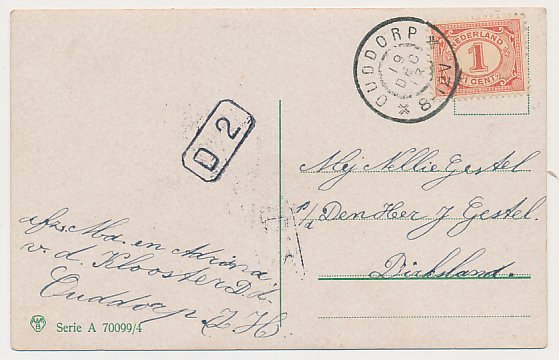 OUDDORP * 8-12V *
19
DEC
NEDERLAND
1
1 CENT
D 2
Mej Nellie Gestel
p/a Den Heer J Gestel.
Dirksland.
afz. Ma. en Adriana
v. d. Klooster D.d.
Ouddorp Z. H.
AMB
Serie A 70099/4